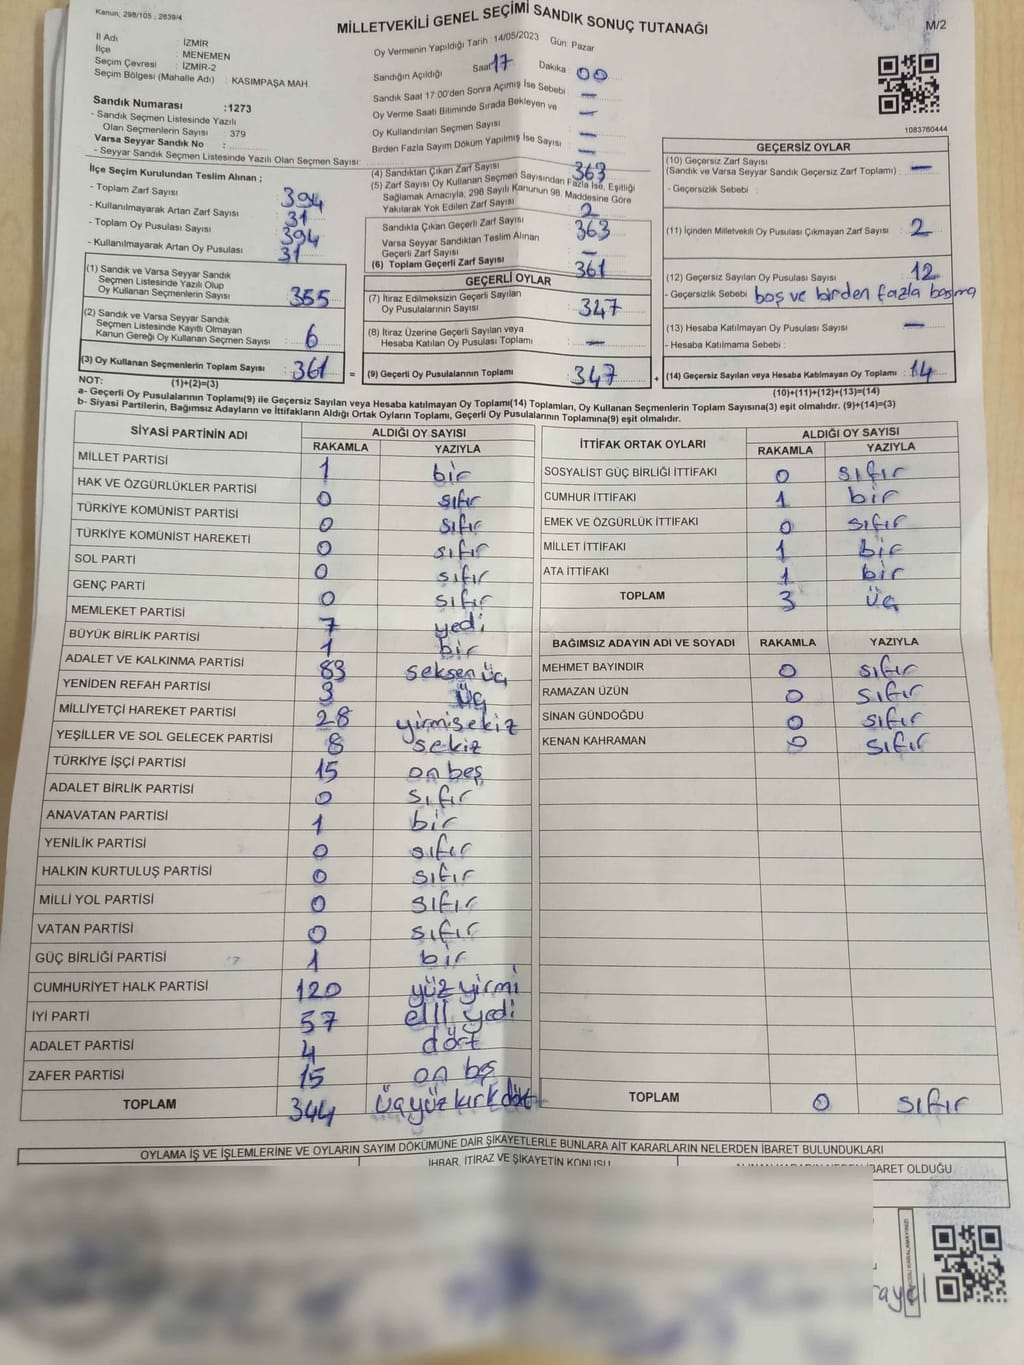 Kanun, 298/105 , 2839/4
MİLLETVEKİLİ GENEL SEÇİMİ SANDIK SONUÇ TUTANAĞI
M/2
İl Adı : İZMİR
İlçe : MENEMEN
Seçim Çevresi : İZMİR-2
Seçim Bölgesi (Mahalle Adı) : KASIMPAŞA MAH
Oy Vermenin Yapıldığı Tarih 14/05/2023 Gün: Pazar
Sandığın Açıldığı Saat 17 Dakika : 00
Sandık Saat 17:00'den Sonra Açılmış İse Sebebi : —
Oy Verme Saati Bitiminde Sırada Bekleyen ve
Oy Kullandırılan Seçmen Sayısı : —
Birden Fazla Sayım Döküm Yapılmış İse Sayısı : —
Sandık Numarası :1273
- Sandık Seçmen Listesinde Yazılı
Olan Seçmenlerin Sayısı : 379
Varsa Seyyar Sandık No :
- Seyyar Sandık Seçmen Listesinde Yazılı Olan Seçmen Sayısı:
1083760444
İlçe Seçim Kurulundan Teslim Alınan ;
- Toplam Zarf Sayısı : 394
- Kullanılmayarak Artan Zarf Sayısı : 31
- Toplam Oy Pusulası Sayısı : 394
- Kullanılmayarak Artan Oy Pusulası : 31
(1) Sandık ve Varsa Seyyar Sandık
Seçmen Listesinde Yazılı Olup
Oy Kullanan Seçmenlerin Sayısı : 355
(2) Sandık ve Varsa Seyyar Sandık
Seçmen Listesinde Kayıtlı Olmayan
Kanun Gereği Oy Kullanan Seçmen Sayısı : 6
(3) Oy Kullanan Seçmenlerin Toplam Sayısı : 361
(1)+(2)=(3)
(4) Sandıktan Çıkan Zarf Sayısı : 363
(5) Zarf Sayısı Oy Kullanan Seçmen Sayısından Fazla İse, Eşitliği
Sağlamak Amacıyla, 298 Sayılı Kanunun 98. Maddesine Göre
Yakılarak Yok Edilen Zarf Sayısı : 2
Sandıkta Çıkan Geçerli Zarf Sayısı : 363
Varsa Seyyar Sandıktan Teslim Alınan
Geçerli Zarf Sayısı : —
(6) Toplam Geçerli Zarf Sayısı : 361
GEÇERLİ OYLAR
(7) İtiraz Edilmeksizin Geçerli Sayılan
Oy Pusulalarının Sayısı : 347
(8) İtiraz Üzerine Geçerli Sayılan veya
Hesaba Katılan Oy Pusulası Toplamı : —
= (9) Geçerli Oy Pusulalarının Toplamı : 347 +
GEÇERSİZ OYLAR
(10) Geçersiz Zarf Sayısı
(Sandık ve Varsa Seyyar Sandık Geçersiz Zarf Toplamı) : —
- Geçersizlik Sebebi :
(11) İçinden Milletvekili Oy Pusulası Çıkmayan Zarf Sayısı : 2
(12) Geçersiz Sayılan Oy Pusulası Sayısı : 12
- Geçersizlik Sebebi : boş ve birden fazla basma
(13) Hesaba Katılmayan Oy Pusulası Sayısı : —
- Hesaba Katılmama Sebebi :
(14) Geçersiz Sayılan veya Hesaba Katılmayan Oy Toplamı : 14
(10)+(11)+(12)+(13)=(14)
NOT:
a- Geçerli Oy Pusulalarının Toplamı(9) ile Geçersiz Sayılan veya Hesaba katılmayan Oy Toplamı(14) Toplamları, Oy Kullanan Seçmenlerin Toplam Sayısına(3) eşit olmalıdır. (9)+(14)=(3)
b- Siyasi Partilerin, Bağımsız Adayların ve İttifakların Aldığı Ortak Oyların Toplamı, Geçerli Oy Pusulalarının Toplamına(9) eşit olmalıdır.
SİYASİ PARTİNİN ADI ALDIĞI OY SAYISI
RAKAMLA YAZIYLA
MİLLET PARTİSİ 1 bir
HAK VE ÖZGÜRLÜKLER PARTİSİ 0 sıfır
TÜRKİYE KOMÜNİST PARTİSİ 0 sıfır
TÜRKİYE KOMÜNİST HAREKETİ 0 sıfır
SOL PARTİ 0 sıfır
GENÇ PARTİ 0 sıfır
MEMLEKET PARTİSİ 7 yedi
BÜYÜK BİRLİK PARTİSİ 1 bir
ADALET VE KALKINMA PARTİSİ 83 seksen üç
YENİDEN REFAH PARTİSİ 3 üç
MİLLİYETÇİ HAREKET PARTİSİ 28 yirmisekiz
YEŞİLLER VE SOL GELECEK PARTİSİ 8 sekiz
TÜRKİYE İŞÇİ PARTİSİ 15 on beş
ADALET BİRLİK PARTİSİ 0 sıfır
ANAVATAN PARTİSİ 1 bir
YENİLİK PARTİSİ 0 sıfır
HALKIN KURTULUŞ PARTİSİ 0 sıfır
MİLLİ YOL PARTİSİ 0 sıfır
VATAN PARTİSİ 0 sıfır
GÜÇ BİRLİĞİ PARTİSİ 1 bir
CUMHURİYET HALK PARTİSİ 120 yüz yirmi
İYİ PARTİ 57 elli yedi
ADALET PARTİSİ 4 dört
ZAFER PARTİSİ 15 on beş
TOPLAM 344 üçyüz kırk dört
İTTİFAK ORTAK OYLARI ALDIĞI OY SAYISI
RAKAMLA YAZIYLA
SOSYALİST GÜÇ BİRLİĞİ İTTİFAKI 0 sıfır
CUMHUR İTTİFAKI 1 bir
EMEK VE ÖZGÜRLÜK İTTİFAKI 0 sıfır
MİLLET İTTİFAKI 1 bir
ATA İTTİFAKI 1 bir
TOPLAM 3 üç
BAĞIMSIZ ADAYIN ADI VE SOYADI RAKAMLA YAZIYLA
MEHMET BAYINDIR 0 sıfır
RAMAZAN ÜZÜN 0 sıfır
SİNAN GÜNDOĞDU 0 sıfır
KENAN KAHRAMAN 0 sıfır
TOPLAM 0 sıfır
OYLAMA İŞ VE İŞLEMLERİNE VE OYLARIN SAYIM DÖKÜMÜNE DAİR ŞİKAYETLERLE BUNLARA AİT KARARLARIN NELERDEN İBARET BULUNDUKLARI
İHBAR, İTİRAZ VE ŞİKAYETİN KONUSU
İBARET OLDUĞU